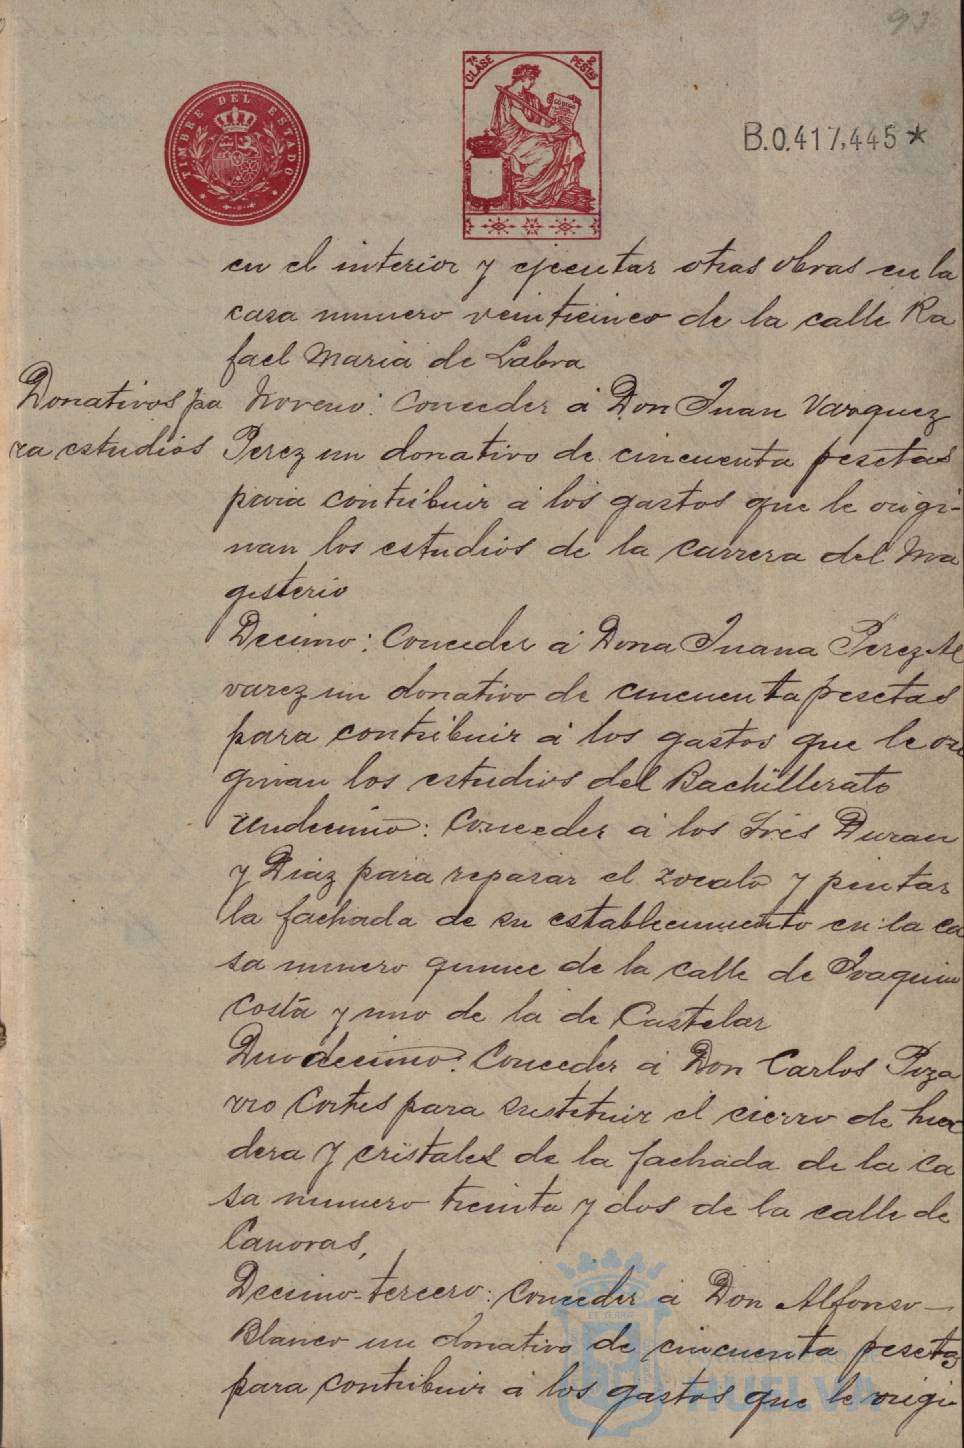 93
TIMBRE DEL ESTADO
7ª CLASE
2 PESTAS
B.0.417,445*
en el interior y ejecutar otras obras en la
casa numero veinticinco de la calle Ra
fael Maria de Labra
Donativos pa
ra estudios
Noveno: Conceder á Don Juan Vazquez
Perez un donativo de cincuenta pesetas
para contribuir á los gastos que le origi-
nan los estudios de la carrera del Ma
gisterio
Decimo: Conceder á Dona Juana Perez Al
varez un donativo de cincuenta pesetas
para contribuir á los gastos que le ori
ginan los estudios del Bachillerato
Undecimo: Conceder á los Sres Duran
y Diaz para reparar el zocalo y pintar
la fachada de su establecimiento en la ca
sa numero quince de la calle de Joaquin
Costa y uno de la de Castelar
Duodecimo: Conceder á Don Carlos Piza
rro Cortes para sustituir el cierro de ma
dera y cristales de la fachada de la ca
sa numero treinta y dos de la calle de
Canovas,
Decimo-tercero: Conceder á Don Alfonso
Blanco un donativo de cincuenta pesetas
para contribuir á los gastos que le origi
HUELVA